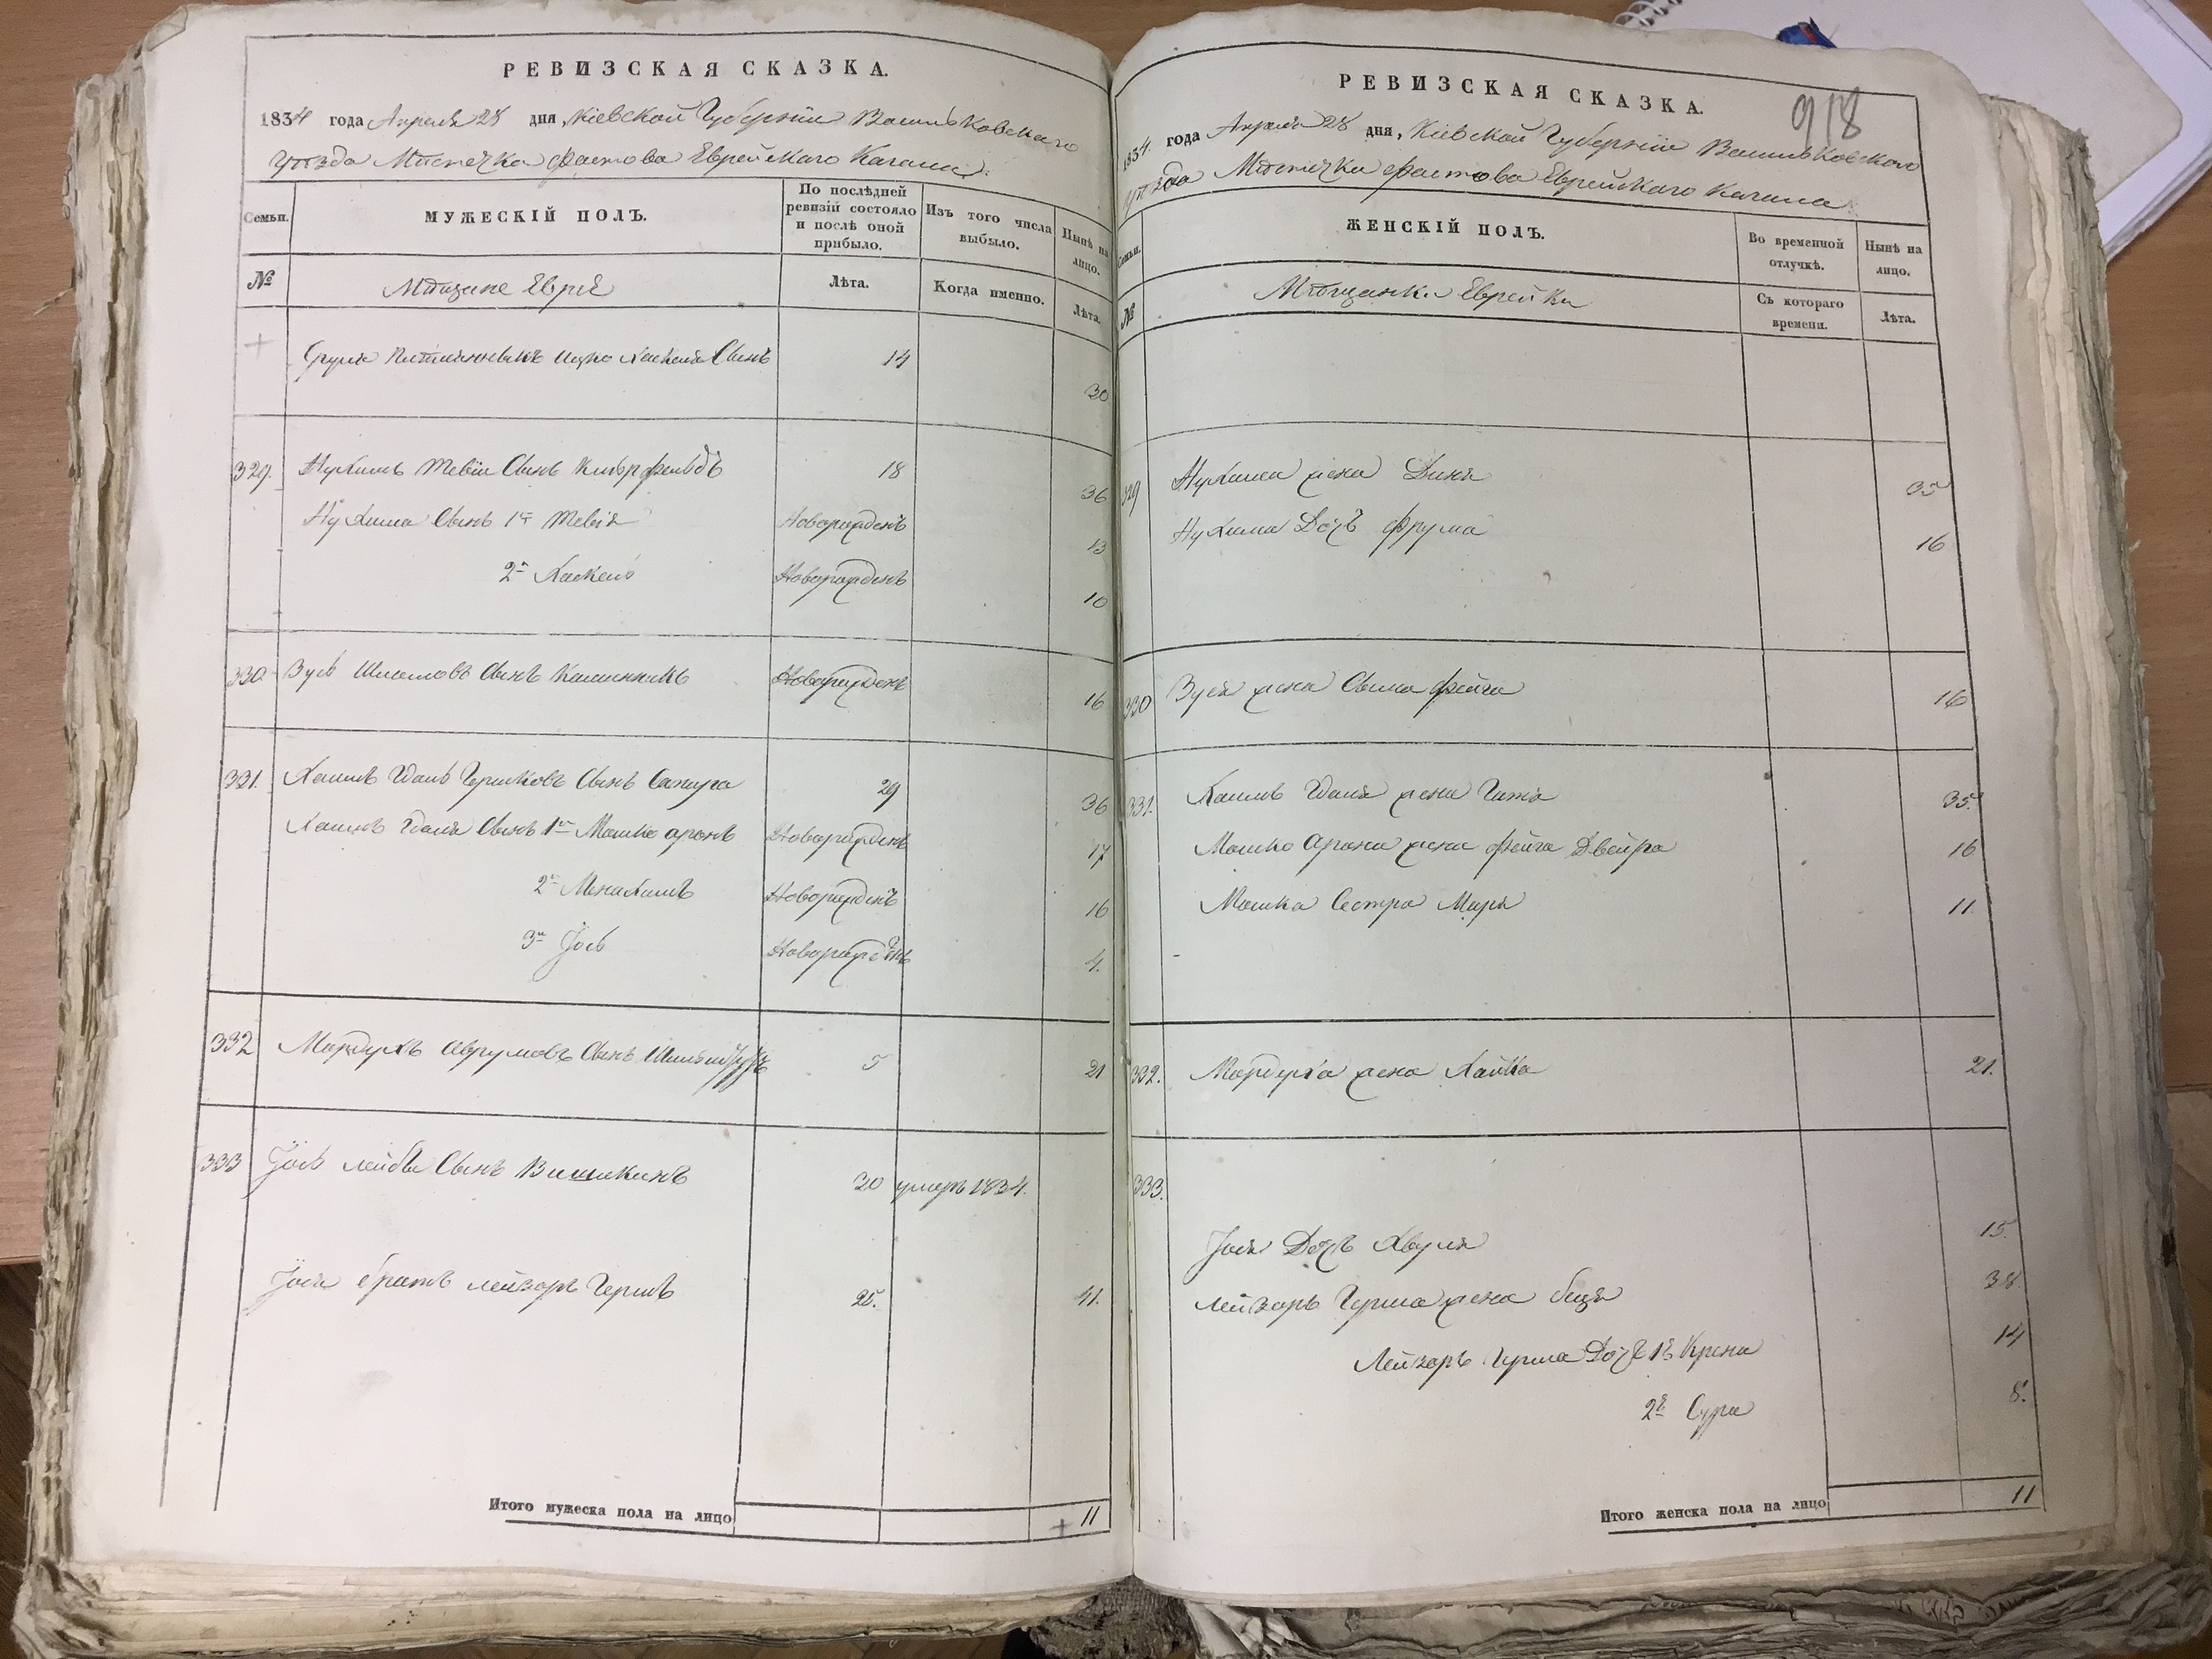 РЕВИЗСКАЯ СКАЗКА.
1834 года Апреля 28 дня, Кіевской Губерніи Васильковскаго
уѣзда Мѣстечка Фастова Еврейскаго Кагала.
Семьи.
МУЖЕСКІЙ ПОЛЪ.
По послѣдней ревизій состояло и послѣ оной прибыло.
Изъ того числа выбыло.
Нынѣ на лицо.
№
Мѣщане Евреи
Лѣта.
Когда именно.
Лѣта.
Срула Ицко Хаскеля Сынъ 14 30
329. Нухимъ Тевіи Сынъ 18 36
Нухима Сынъ 1й Тевія Новорожденъ 13
2й Хаскель Новорожденъ 10
330 Зусь Сынъ Новорожденъ 16
331. Хаимъ Гдаль Гершковъ Сынъ Сапира 29 36
Хаимъ Гдаля Сынъ 1й Мошко Аронъ Новорожденъ 17
2й Менахимъ Новорожденъ 16
3й Іось Новорожденъ 4.
332 Мордухъ Аврумовъ Сынъ 5 21
333 Іось Лейбы Сынъ Вишикинъ 20 умеръ 1834.
Іося братъ Лейзоръ Гершъ 25. 41.
Итого мужеска пола на лицо 11
РЕВИЗСКАЯ СКАЗКА.
918
1834 года Апреля 28 дня, Кіевской Губерніи Васильковского
уѣзда Мѣстечка Фастова Еврейскаго Кагала
Семьи.
ЖЕНСКІЙ ПОЛЪ.
Во временной отлучкѣ.
Нынѣ на лицо.
№
Мѣщанки Еврейки
Съ котораго времени.
Лѣта.
329 Нухима жена Диня 35
Нухима Дочь Фрума 16
330 Зуся жена Сыма Фейга 16
331. Хаимъ Гдаля жена Гитя 35.
Мошко Арона жена Фейга Двейра 16
Мошка Сестра Маря 11.
332. Мордуха жена Хайка 21.
333.
Іося Дочь Хвуля 15.
Лейзоръ Герша жена Бася 38.
Лейзоръ Герша Дочь 1я Крейна 14
2я Сура 8.
Итого женска пола на лицо 11